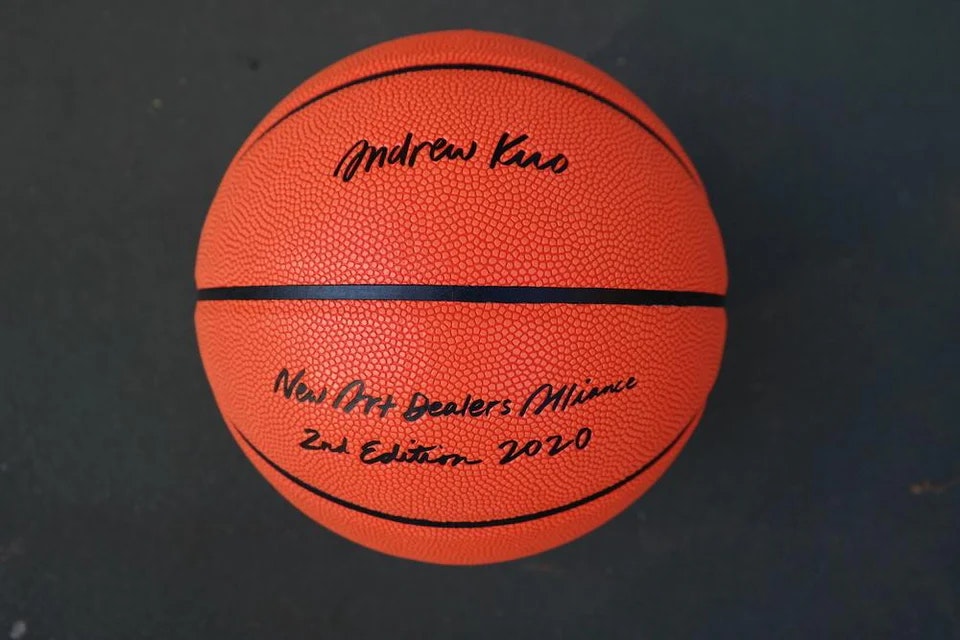 Andrew Kuo
New Art Dealers Alliance
2nd Edition 2020